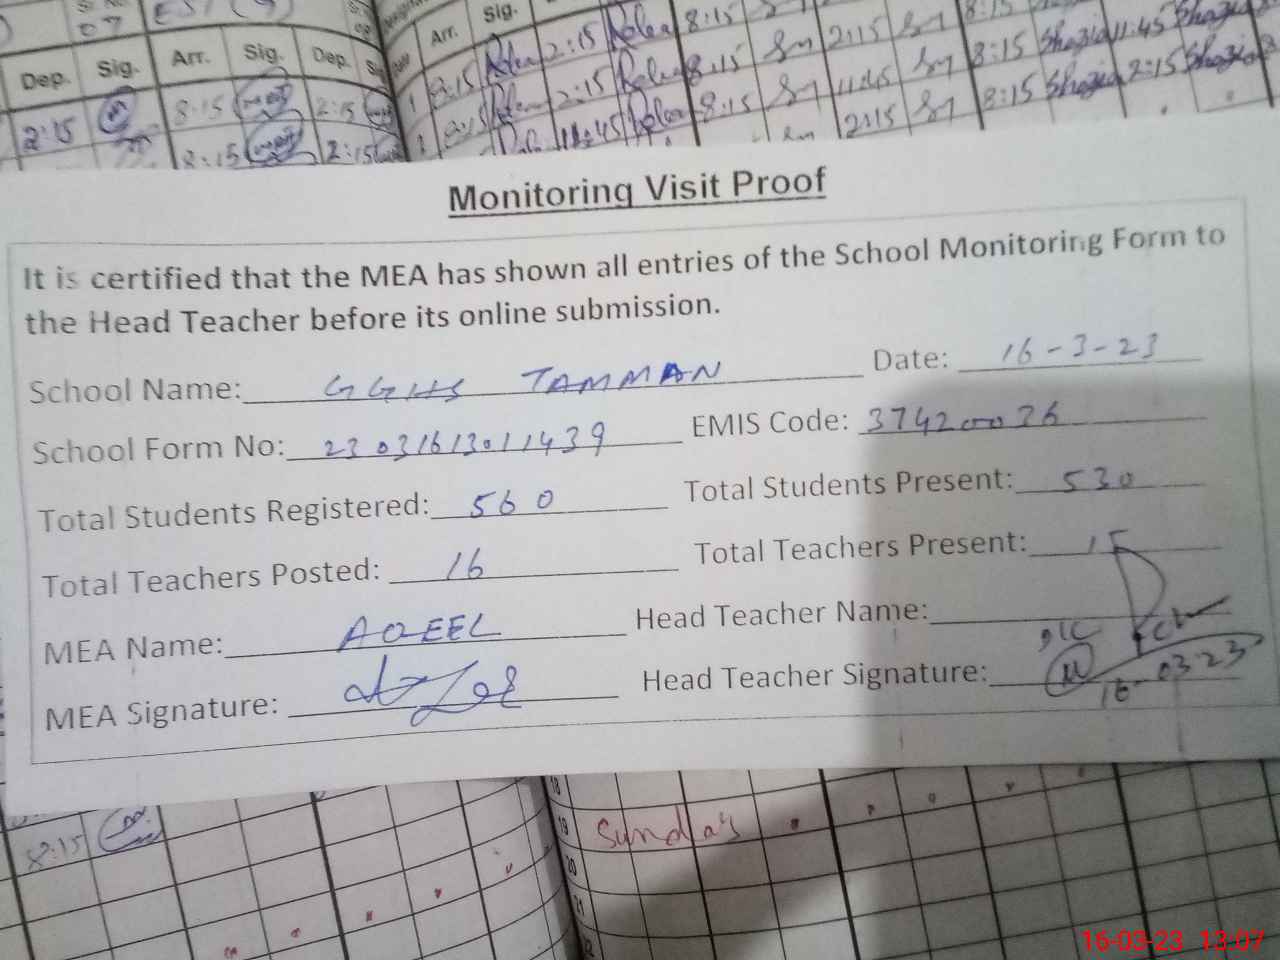 Dep. Sig. Arr. Sig. Dep. Arr. Sig.
2:15 8:15 2:15 8:15 2:15 8:15 2:15 8:15 Shazia 11:45 Shazia
8:15 2:15 8:15 2:15 8:15 11:45 8:15 Shazia 2:15 Shazia
11:45 8:15 2:15
Monitoring Visit Proof
It is certified that the MEA has shown all entries of the School Monitoring Form to
the Head Teacher before its online submission.
School Name: GGHS TAMMAN Date: 16-3-23
School Form No: 23031613011439 EMIS Code: 37420026
Total Students Registered: 560 Total Students Present: 530
Total Teachers Posted: 16 Total Teachers Present: 15
MEA Name: AQEEL Head Teacher Name:
MEA Signature: Head Teacher Signature: 16-03-23
8:15
18
19 Sunday
20
21
22
16-03-23 13:07